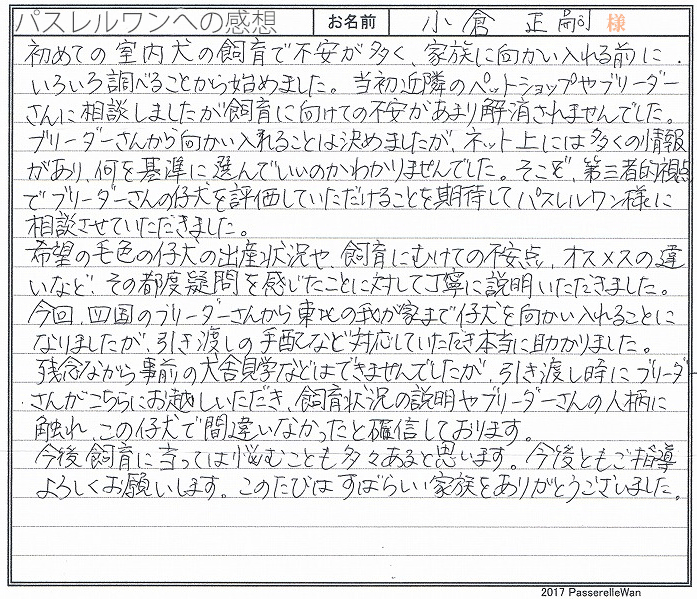 パスレルワンへの感想 お名前 小倉 正嗣 様
初めての室内犬の飼育で不安が多く、家族に向かい入れる前に、
いろいろ調べることから始めました。当初近隣のペットショップやブリーダー
さんに相談しましたが飼育に向けての不安があまり解消されませんでした。
ブリーダーさんから向かい入れることは決めましたが、ネット上には多くの情報
があり、何を基準に選んでいいのかわかりませんでした。そこで、第三者的視点
でブリーダーさんの仔犬を評価していただけることを期待してパスレルワン様に
相談させていただきました。
希望の毛色の仔犬の出産状況や、飼育にむけての不安点、オスメスの違
いなど、その都度疑問を感じたことに対して丁寧に説明いただきました。
今回、四国のブリーダーさんから東北の我が家まで仔犬を向かい入れることに
なりましたが、引き渡しの手配など対応していただき本当に助かりました。
残念ながら事前の犬舎見学などはできませんでしたが、引き渡し時にブリーダー
さんがこちらにお越しいただき、飼育状況の説明やブリーダーさんの人柄に
触れ、この仔犬で間違いなかったと確信しております。
今後飼育に当っては悩むことも多々あると思います。今後ともご指導
よろしくお願いします。このたびはすばらしい家族をありがとうございました。
2017 PasserelleWan